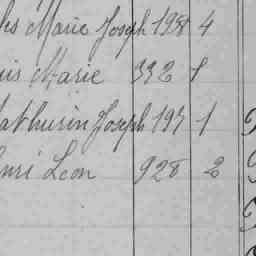 les Marie Joseph 198 4
uis Marie 332 1
athurin Joseph 197 1
enri Léon 928 2